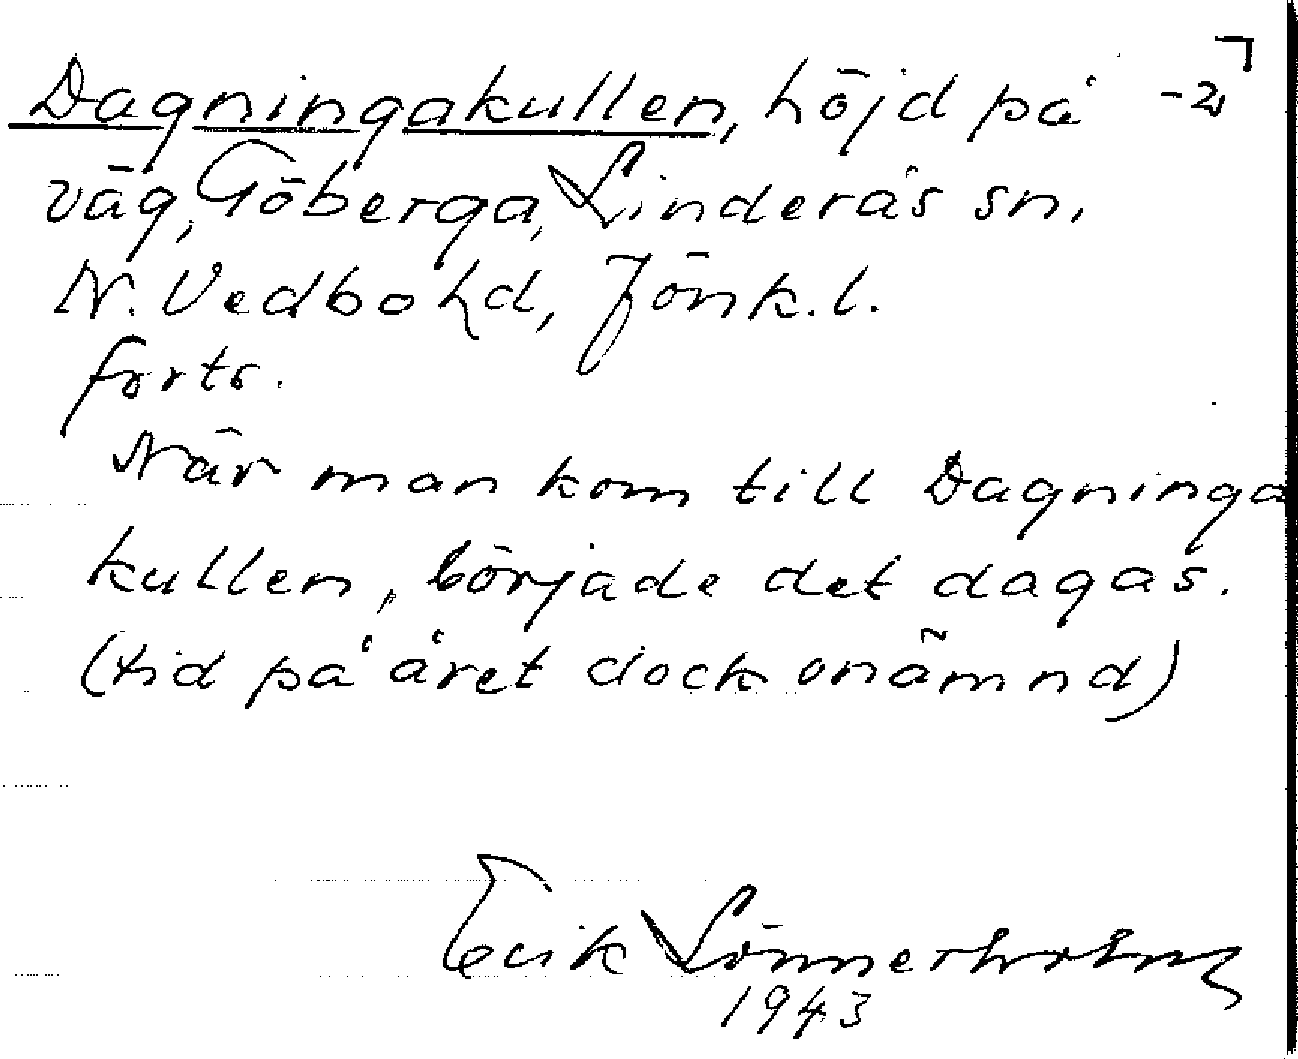 Dagningakullen, höjd på -2,
väg, Göberga, Linderås sn,
N. Vedbo hd, Jönk. l.
forts.
När man kom till Dagninga
kullen, började det dagas.
(tid på året dock onämnd)
Erik Lönnerholm
1943